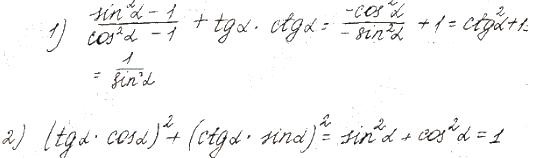 1) (sin²α - 1)/(cos²α - 1) + tgα · ctgα = (-cos²α)/(-sin²α) + 1 = ctg²α + 1 =
= 1/sin²α
2) (tgα · cosα)² + (ctgα · sinα)² = sin²α + cos²α = 1